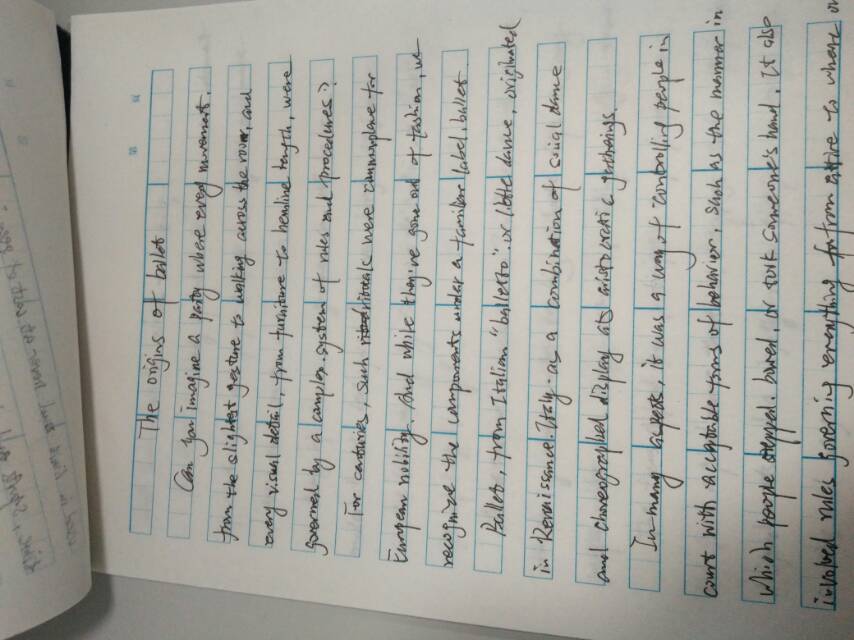 The origins of ballet
Can you imagine a party where every movement,
from the slightest gesture to walking across the room, and
every visual detail, from furniture to hemline length, were
governed by a complex system of rules and procedures?
For centuries, such rituals were commonplace for
European nobility. And while they've gone out of fashion, we
recognize the components under a familiar label, ballet.
Ballet, from Italian "balletto" or little dance, originated
in Renaissance Italy as a combination of social dance
and choreographed display at aristocratic gatherings.
In many aspects, it was a way of controlling people in
court with acceptable forms of behavior, such as the manner in
which people stepped, bowed, or took someone's hand. It also
involved rules governing everything from attire to where